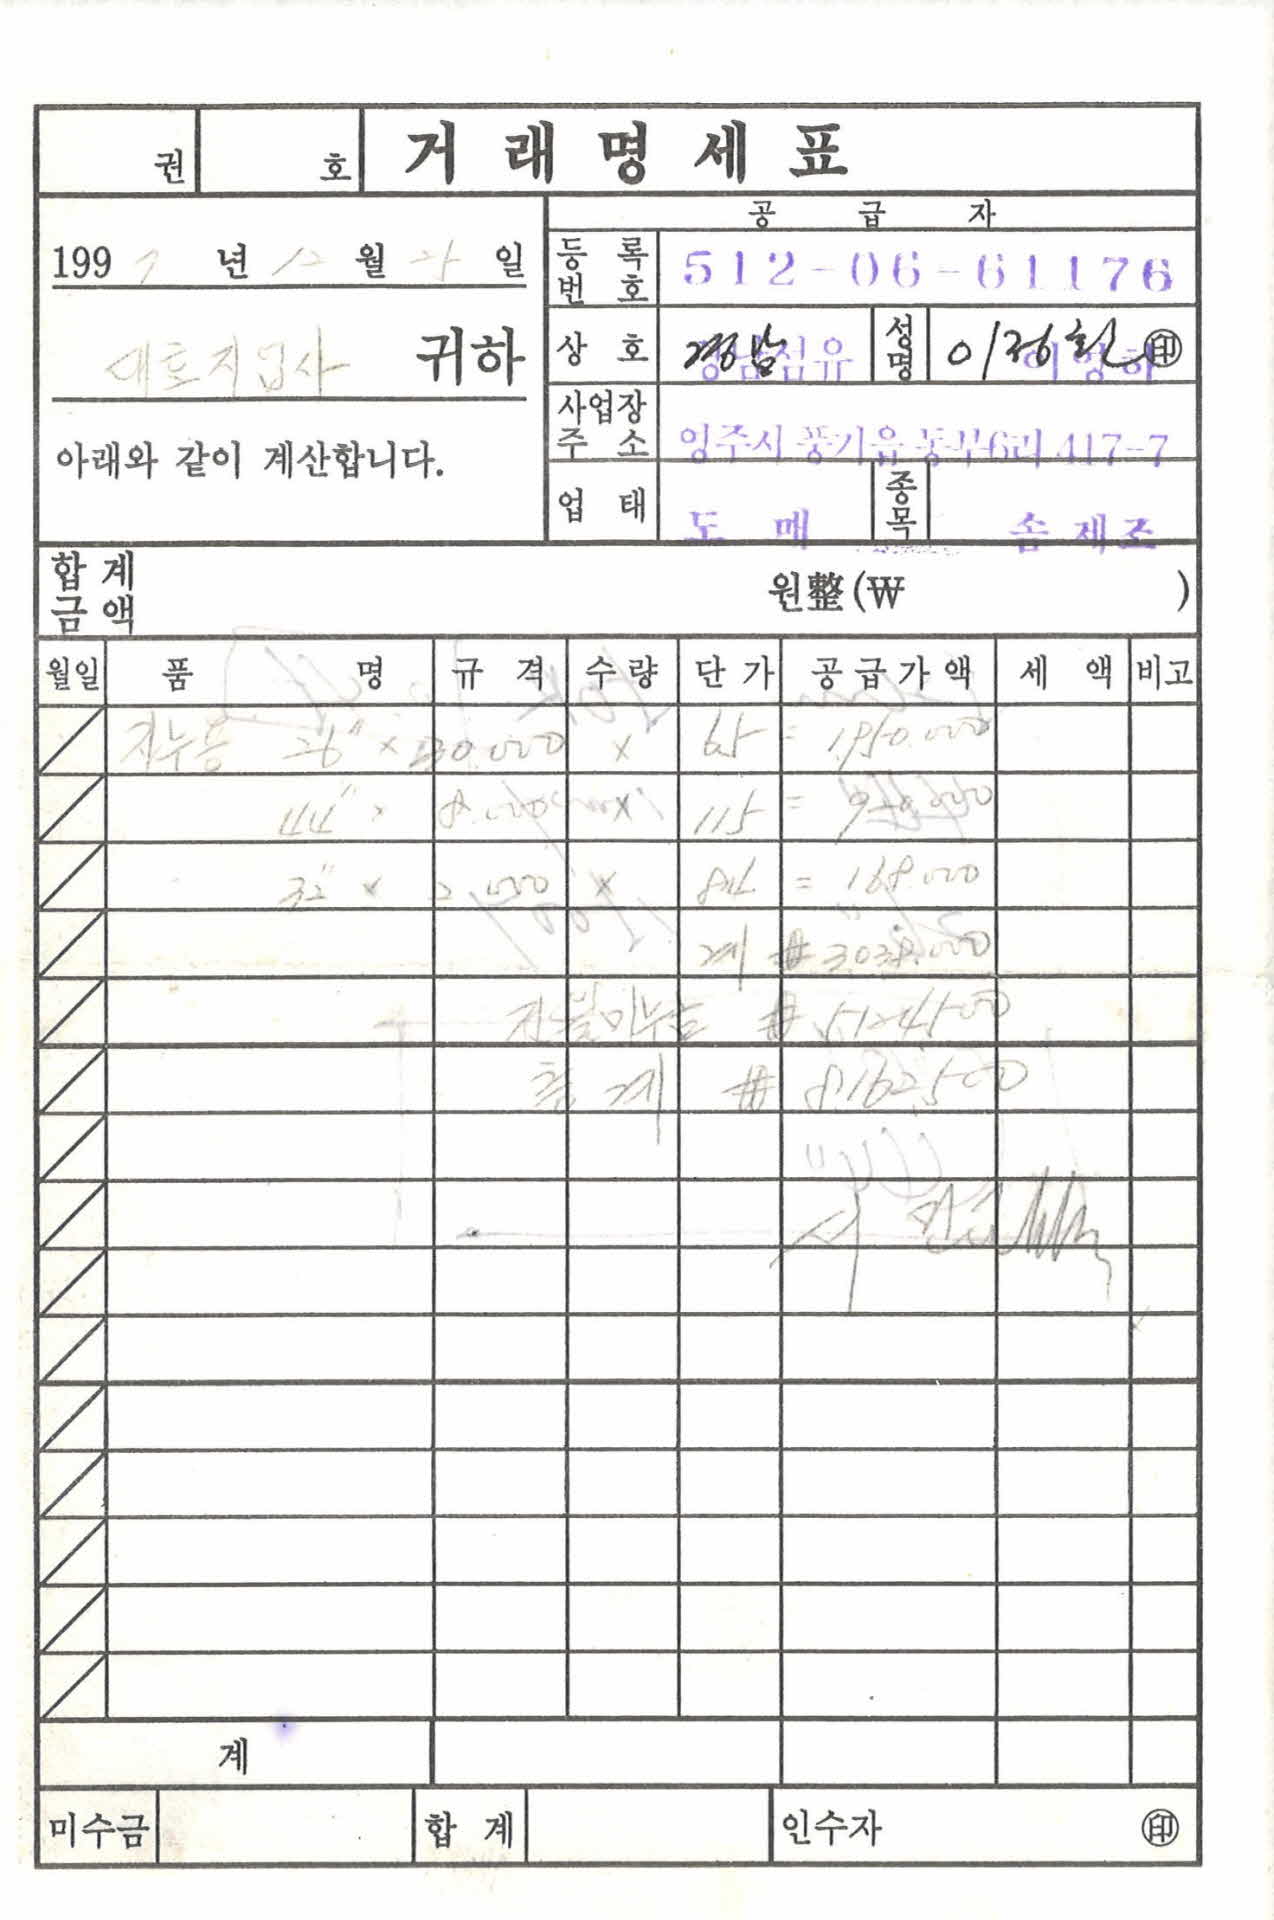 권 호 거래명세표
공급자
1997년 12월 21일
등록번호 512-06-61176
대호지업사 귀하
상호 경남섬유 경남 성명 이정환 ㊞
사업장주소 영주시 풍기읍 동부6리 417-7
아래와 같이 계산합니다.
업태 도매 종목 솜제조
합계금액 원整(₩ )
월일 품명 규격 수량 단가 공급가액 세액 비고
26" × 30.000 × 65 = 1,950.000
44" × 8.000 × 115 = 920.000
32" × 2.000 × 84 = 168.000
계 # 3.038.000
# 5,124,500
총계 # 8,162,500
계
미수금 합계 인수자 ㊞